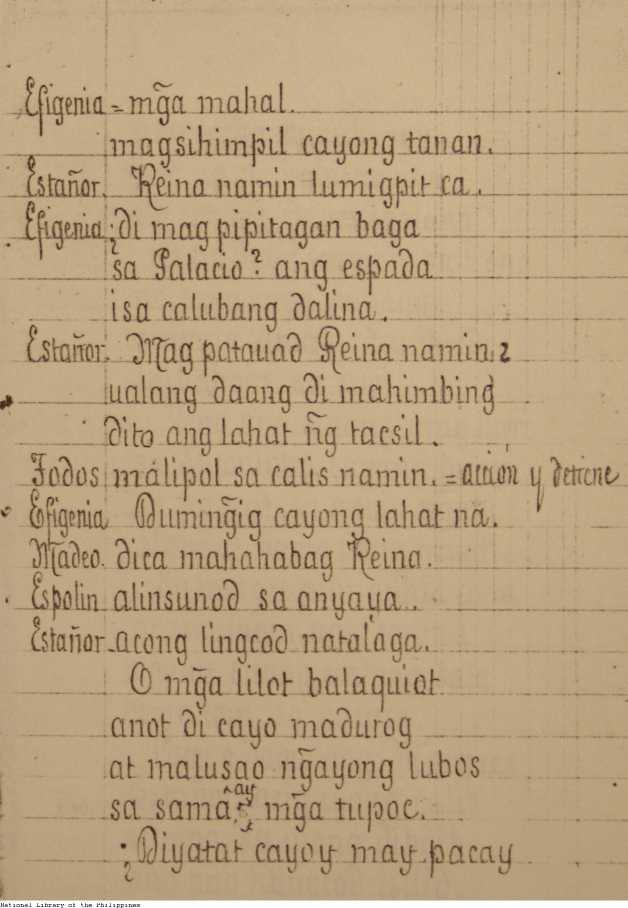 Efigenia = mg̃a mahal.
magsihimpil cayong tanan.
Estañor. Reina namin lumigpit ca.
Efigenia ¿di mag pipitagan baga
sa Palacio? ang espada
isa calubang dalina.
Estañor. Mag patauad Reina namin.
ualang daang di mahimbing
dito ang lahat ng̃ tacsil.
Todos malipol sa calis namin. = accion y detiene
Efigenia Duming̃ig cayong lahat na.
Madeo. dica mahahabag Reina.
Espolin alinsunod sa anyaya.
Estañor - acong lingcod natalaga.
O mg̃a lilot balaquiot
anot di cayo madurog
at malusao ng̃ayong lubos
sa samâ, ay mg̃a tupoc.
¿Diyatat cayoy may pacay
National Library of the Philippines